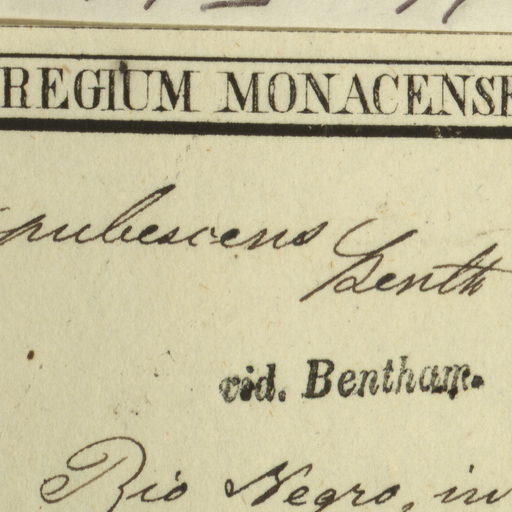 REGIUM MONACENSE
pubescens Benth
vid. Bentham.
Rio Negro, in